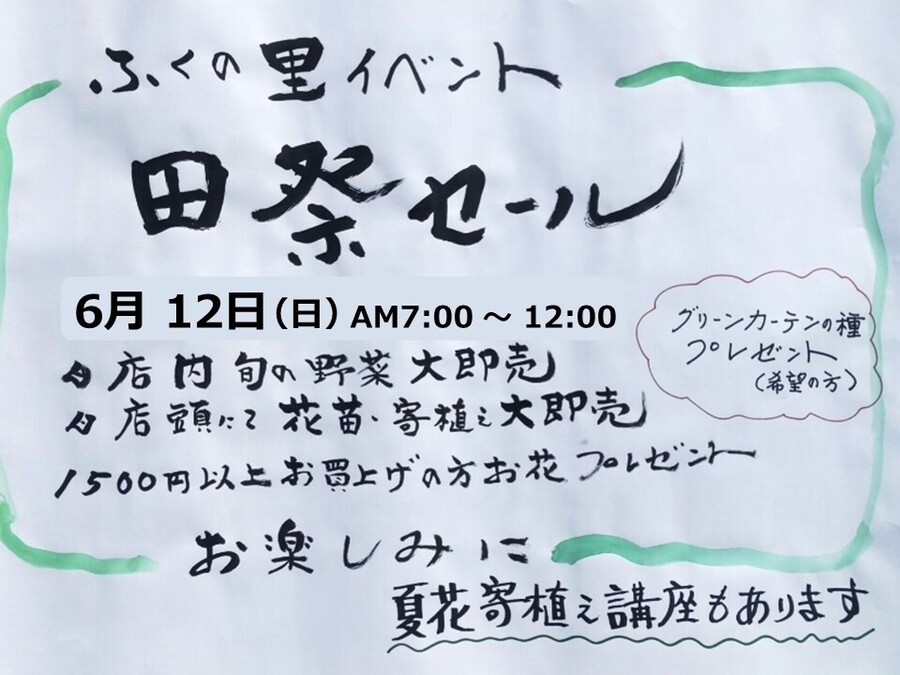 ふくの里イベント
田祭セール
6月 12日（日）AM7:00 ～ 12:00
グリーンカーテンの種
プレゼント
（希望の方）
店内 旬の野菜 大即売
店頭にて 花苗・寄植え大即売
1500円以上お買上げの方お花プレゼント
お楽しみに
夏花寄植え講座もあります